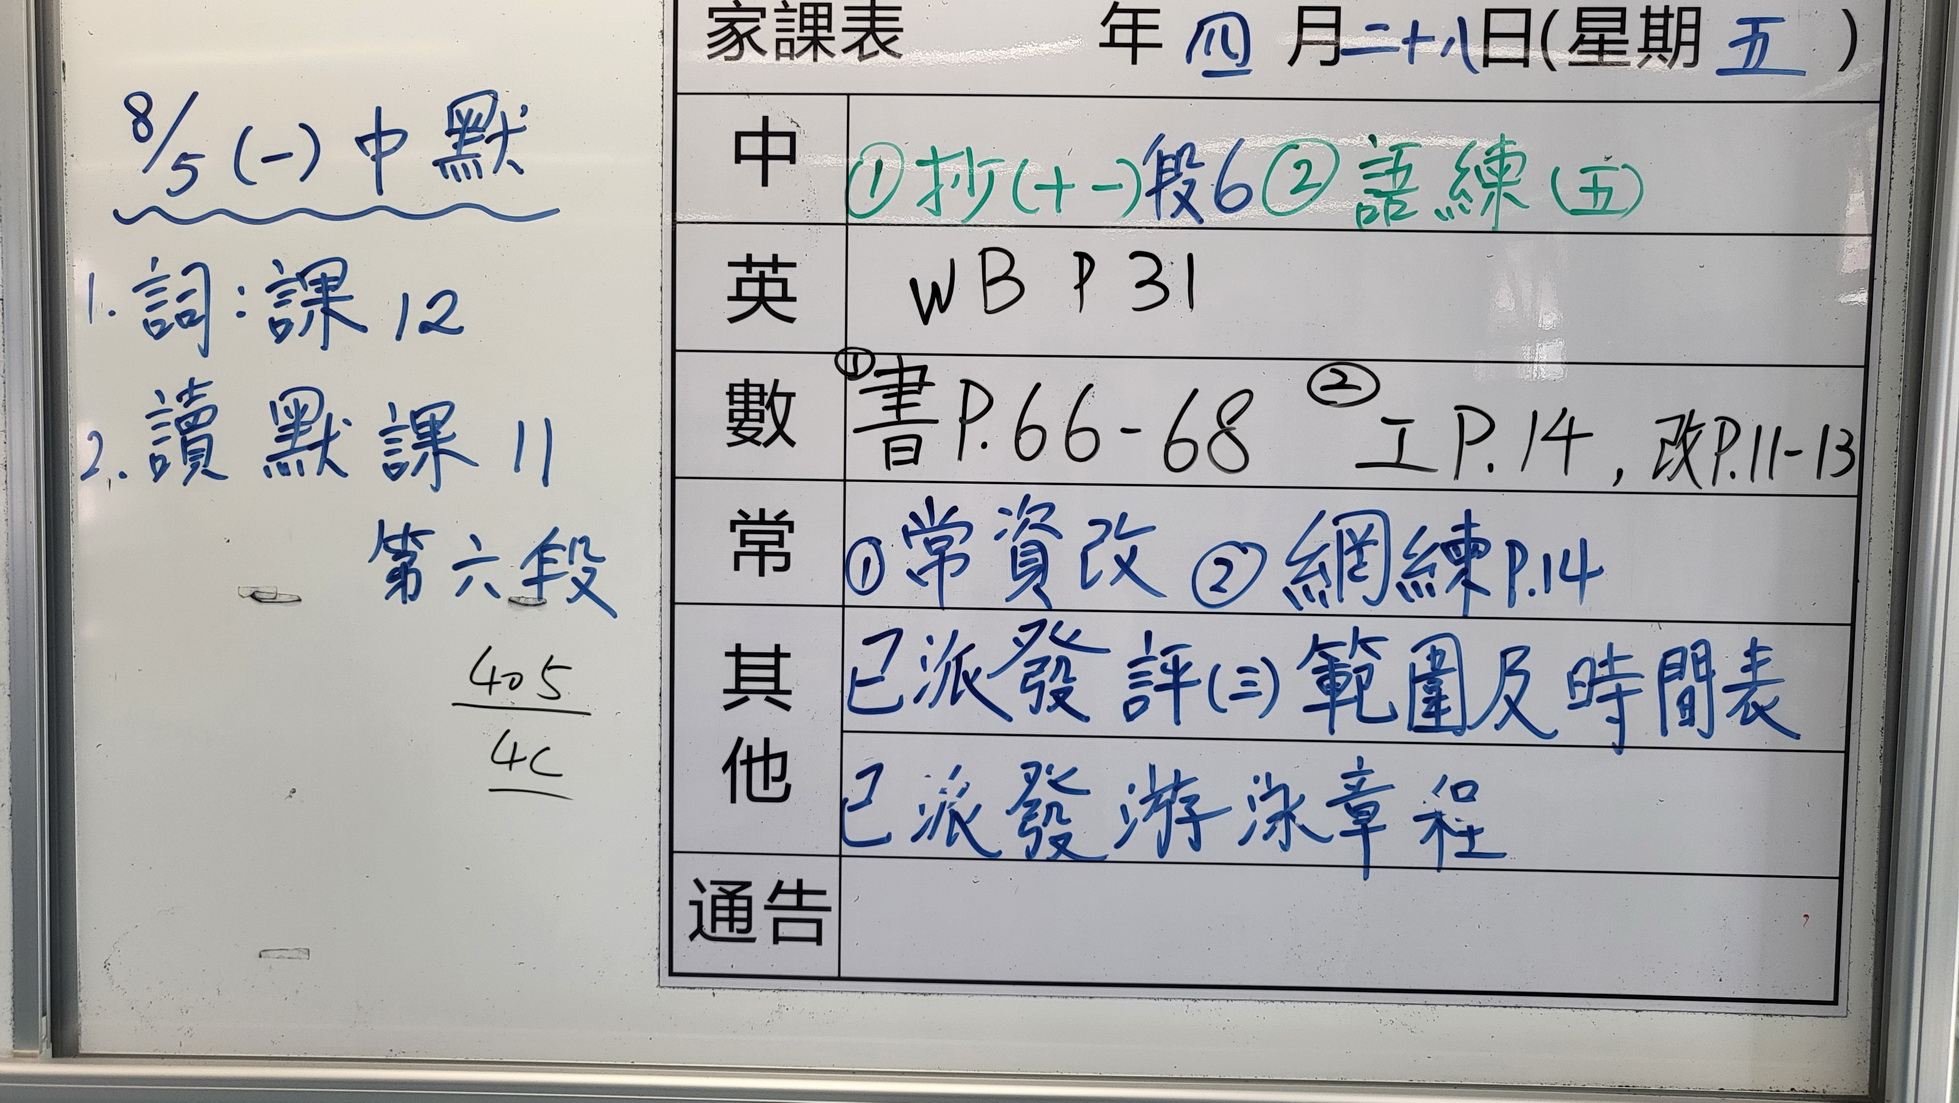 8/5 (一) 中默
1. 詞：課 12
2. 讀默課 11
第六段
405
4C
家課表 年 四 月 二十八 日(星期 五 )
中 ①抄(十一)段6 ②語練(五)
英 WB P 31
數 ①書P.66-68 ②工P.14, 改P.11-13
常 ①常資改 ②網練P.14
其他 已派發評(三)範圍及時間表
已派發游泳章程
通告